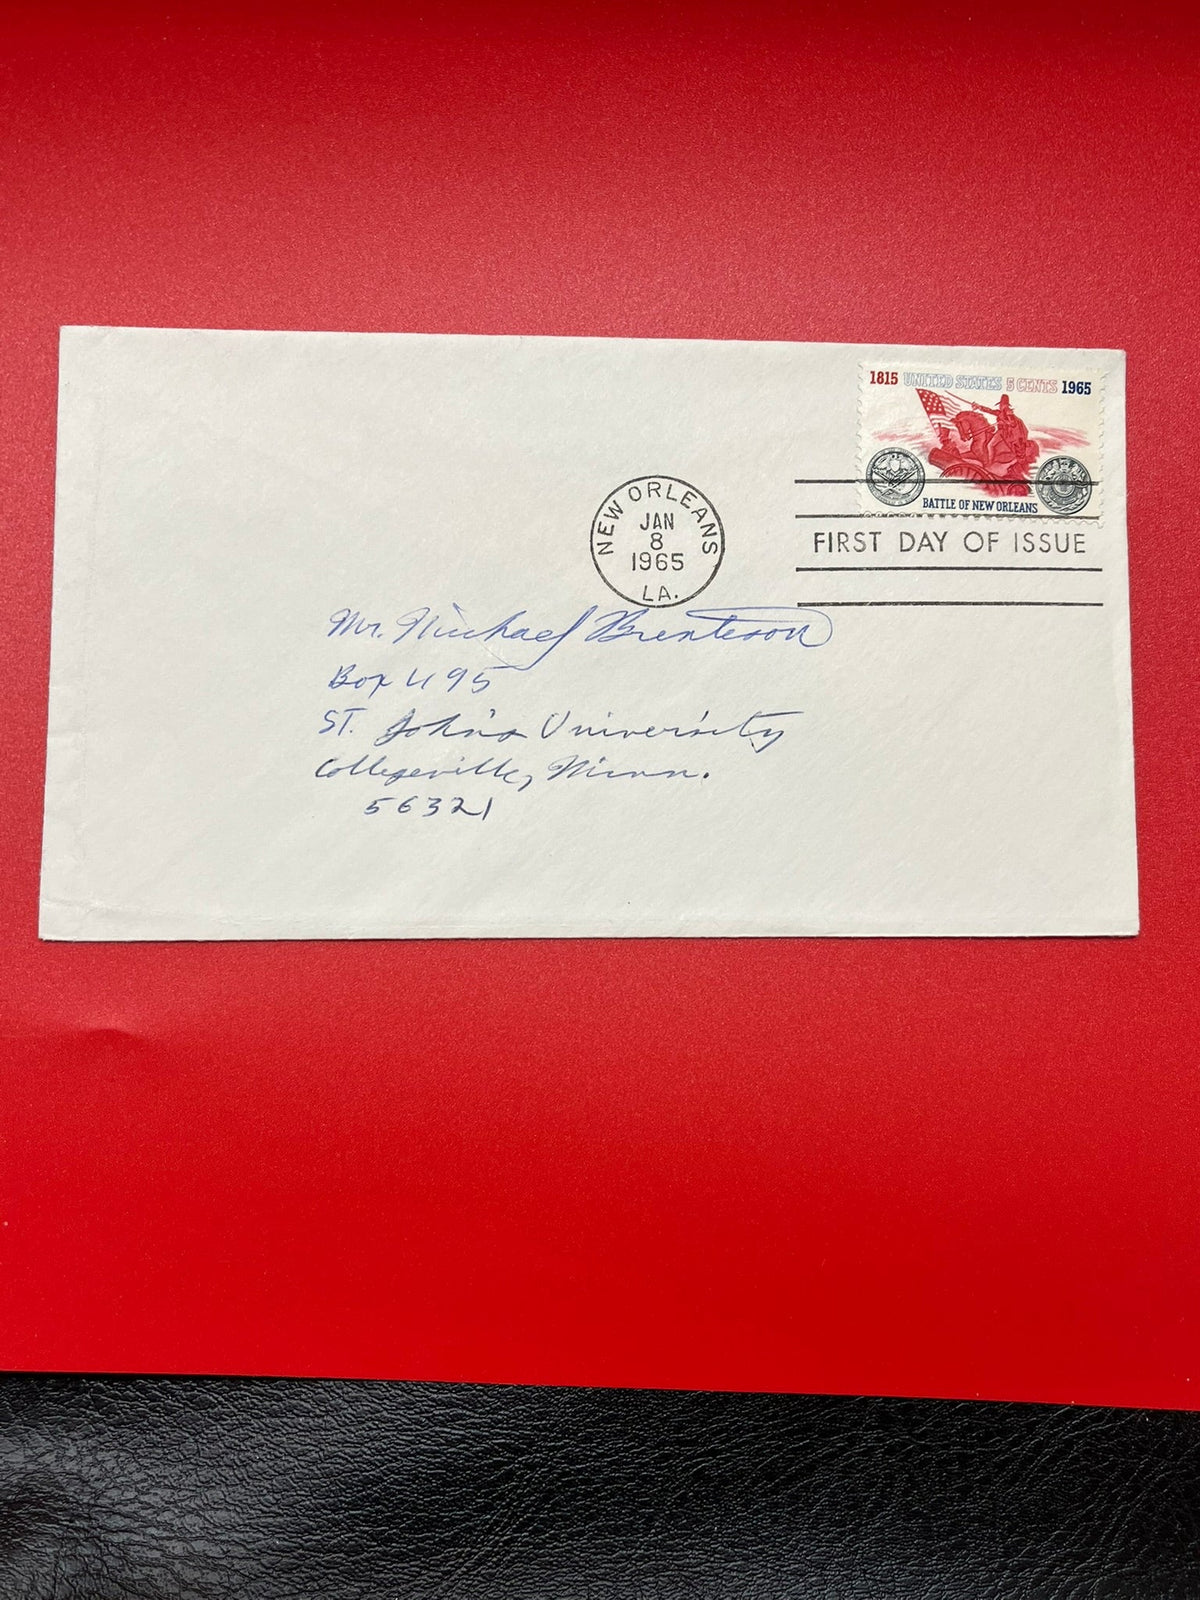 1815 UNITED STATES 5 CENTS 1965
BATTLE OF NEW ORLEANS
NEW ORLEANS
JAN
8
1965
LA.
FIRST DAY OF ISSUE
Mr. Michael Brenteson
Box 495
ST. John's University
Collegeville, Minn.
56321